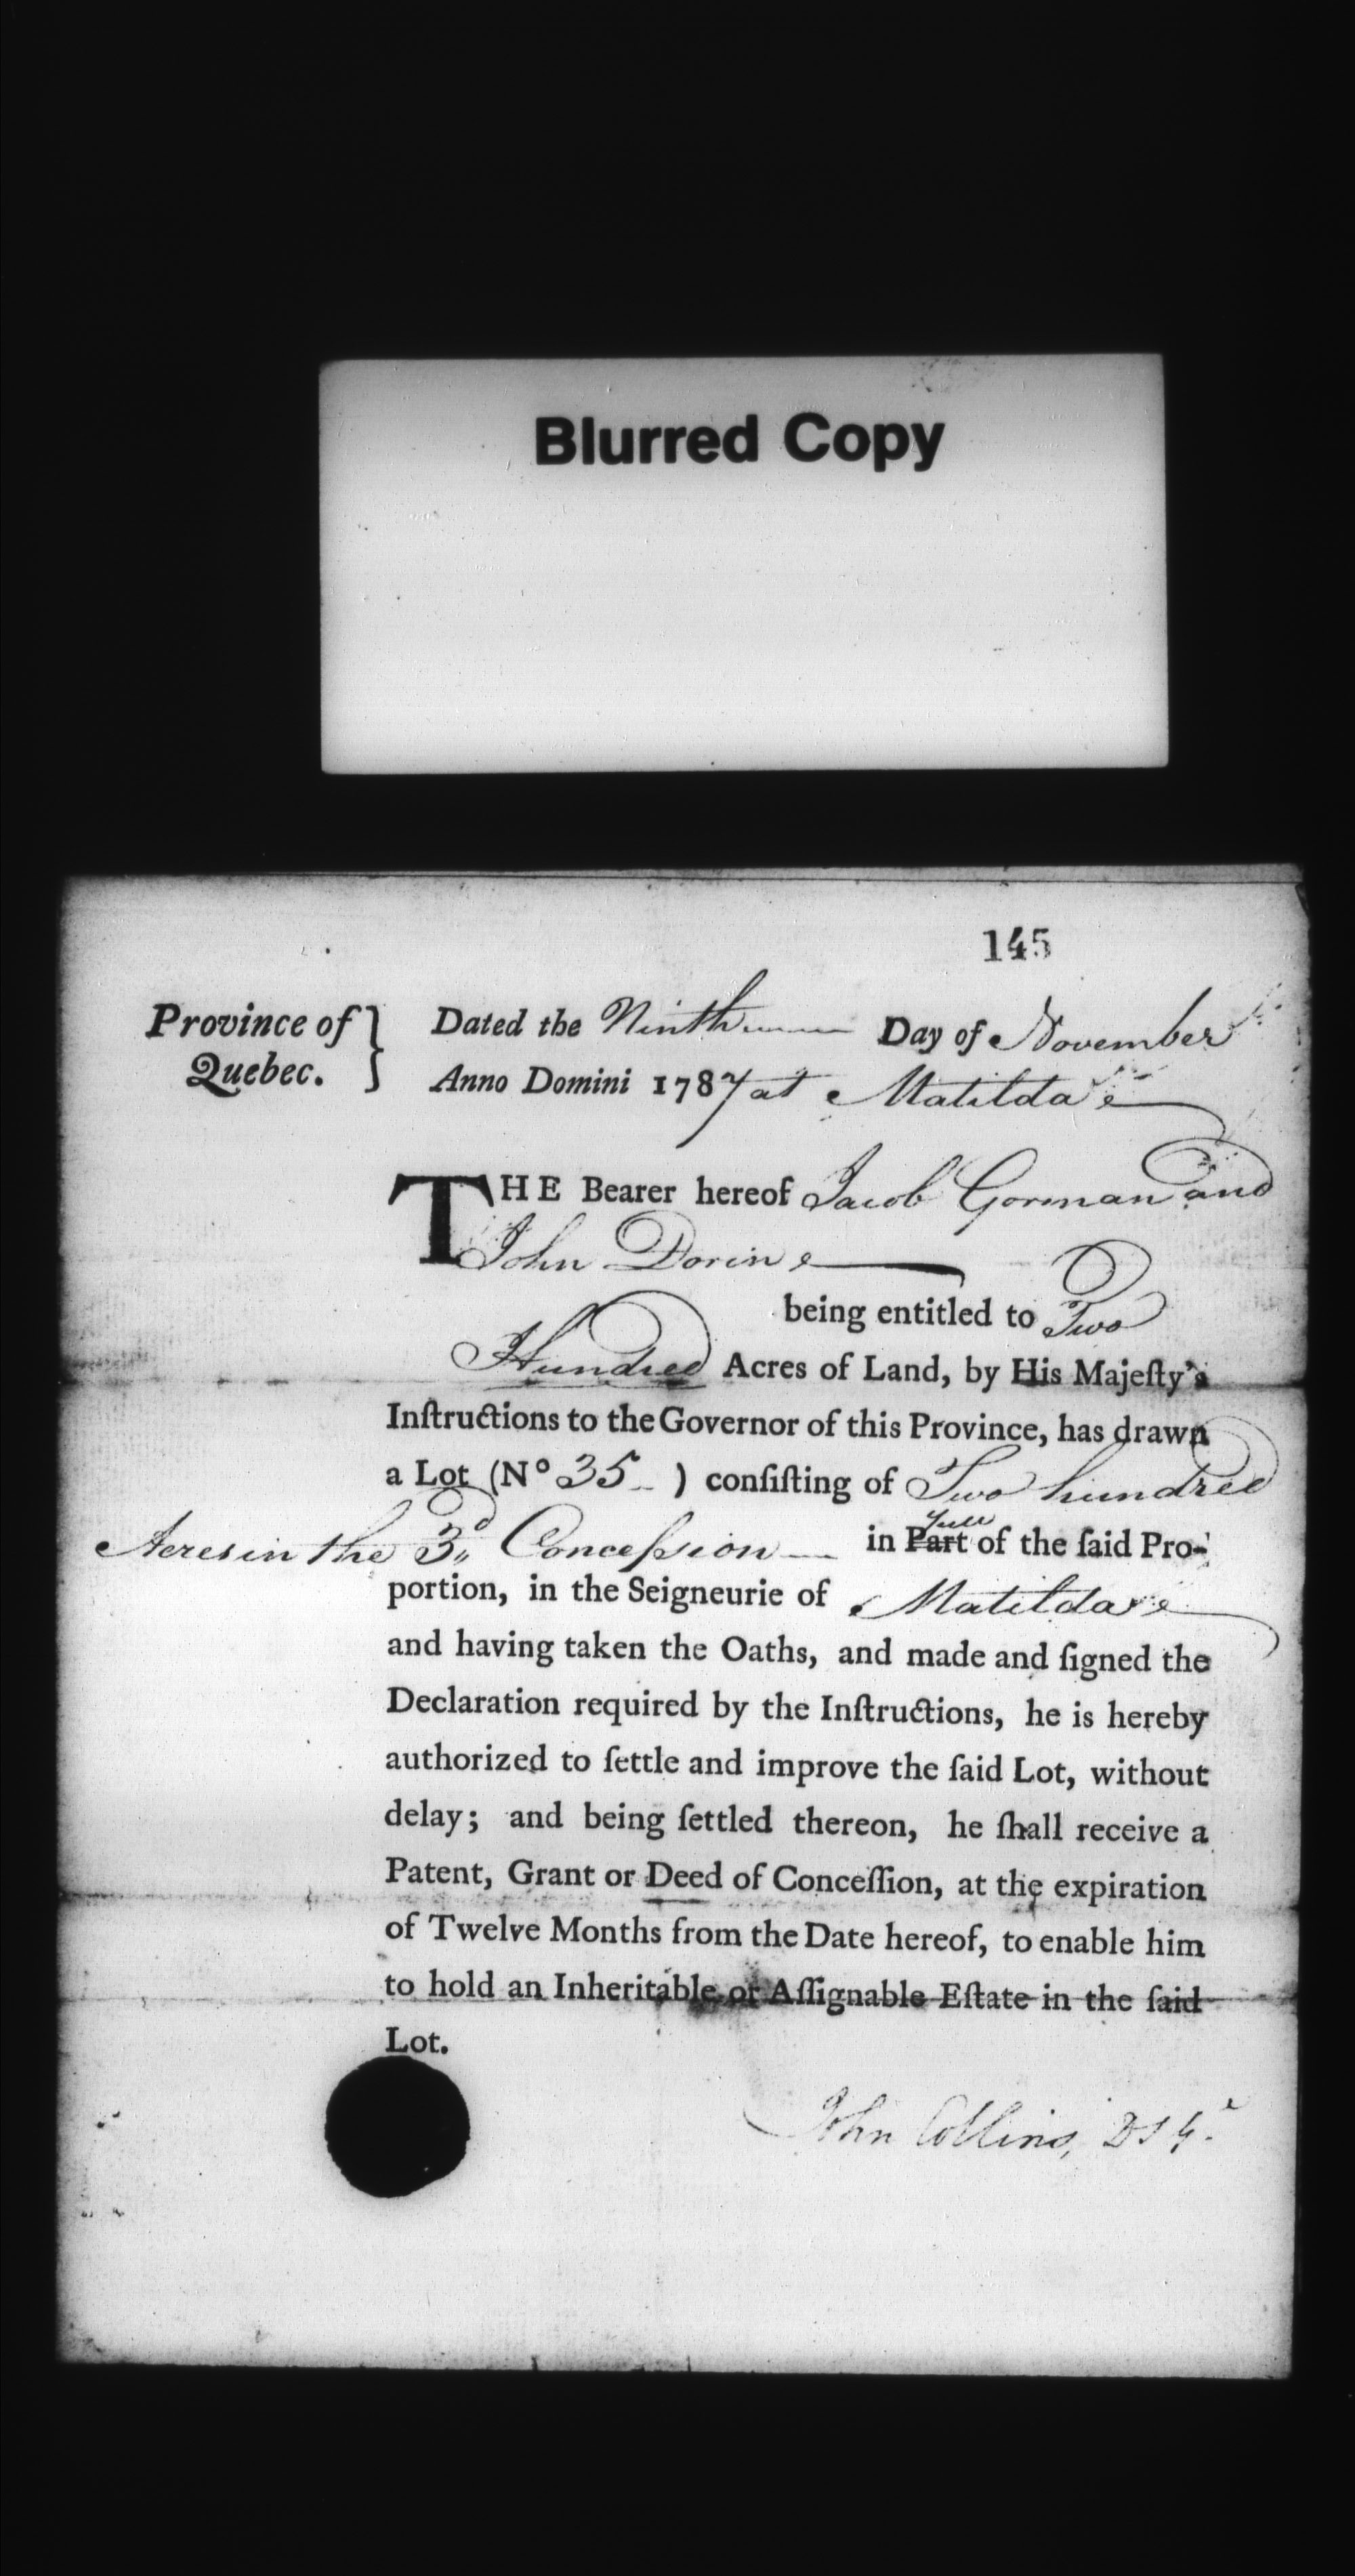 Blurred Copy
145
Province of Quebec. } Dated the Ninth Day of November
Anno Domini 1787 at Matilda
THE Bearer hereof Jacob Gorman and
John Dorin
being entitled to Two
Hundred Acres of Land, by His Majeſty's
Inſtructions to the Governor of this Province, has drawn
a Lot (No 35 ) conſiſting of Two hundred
Acres in the 3d Conceſsion in Part full of the ſaid Pro-
portion, in the Seigneurie of Matilda
and having taken the Oaths, and made and ſigned the
Declaration required by the Inſtructions, he is hereby
authorized to ſettle and improve the ſaid Lot, without
delay; and being ſettled thereon, he ſhall receive a
Patent, Grant or Deed of Conceſſion, at the expiration
of Twelve Months from the Date hereof, to enable him
to hold an Inheritable or Aſſignable Eſtate in the ſaid
Lot.
John Collins, D S G.